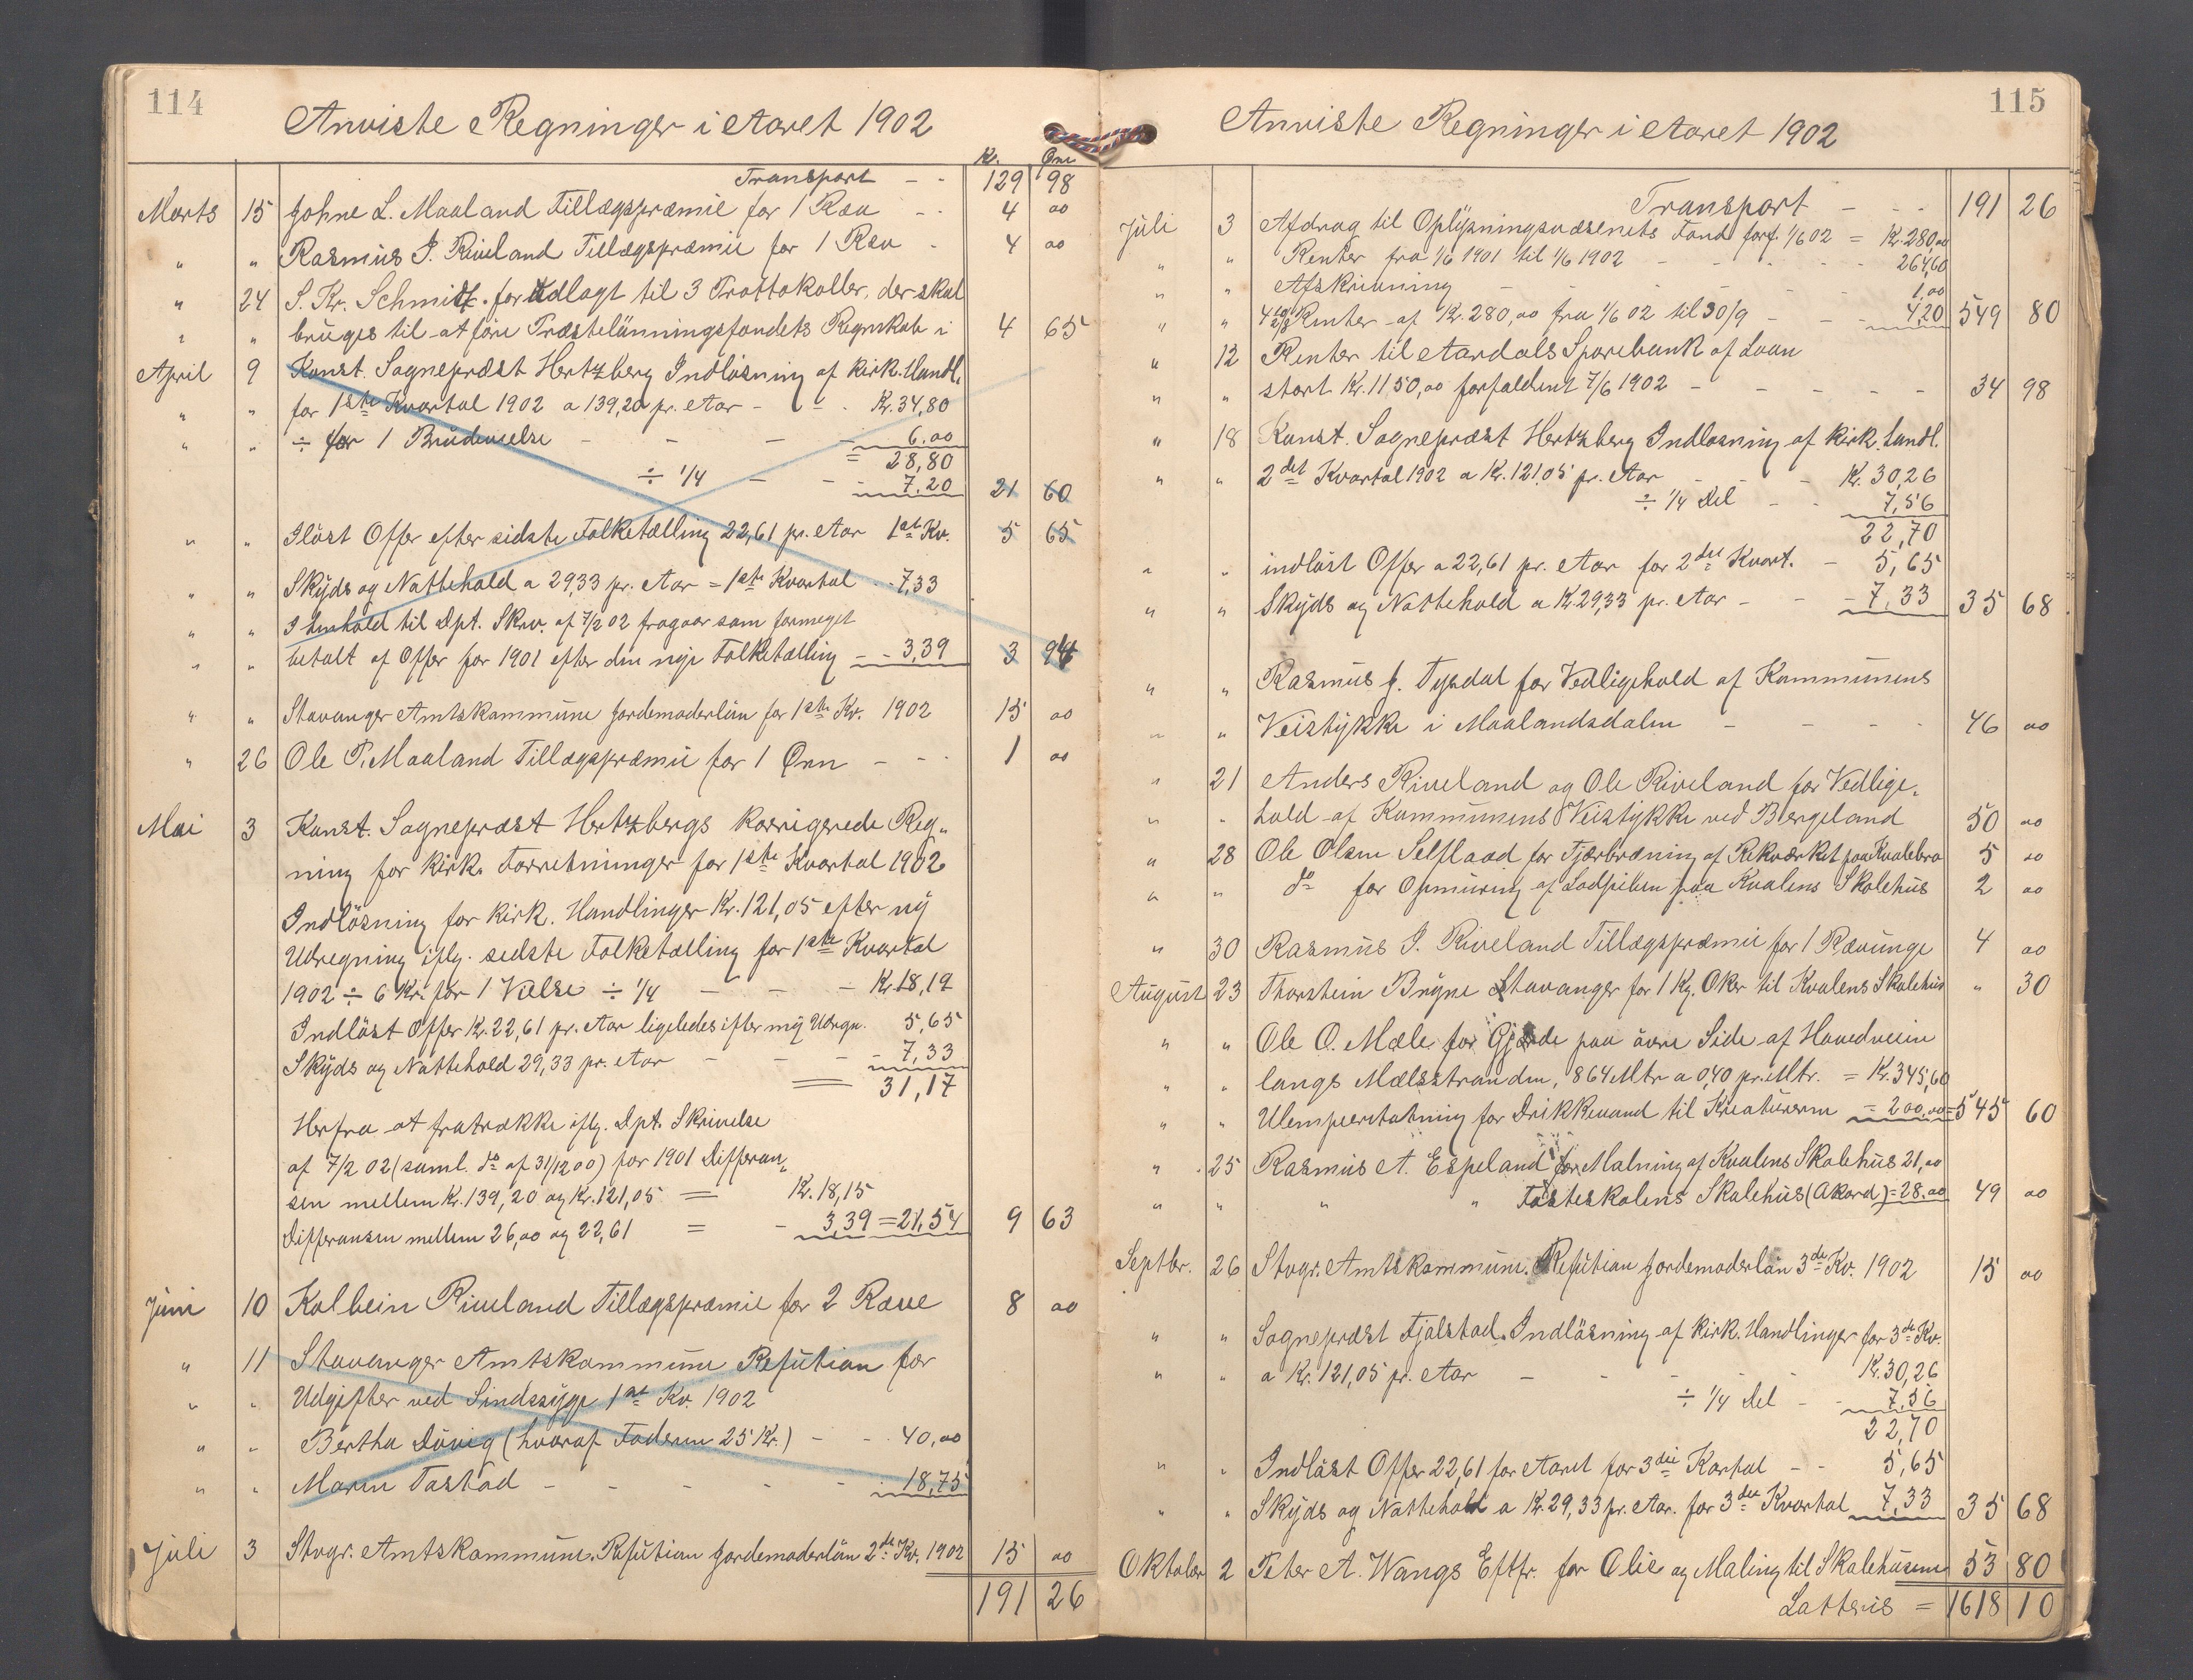 114
Anviste Regninger i Aaret 1902
Kr. Øre
Transport - - 129 98
Marts 15 Johne L. Maaland Tillægspræmie for 1 Ræv - - 4 00
" " Rasmus J. Riveland Tillægspræmie for 1 Ræv - 4 00
" 24 S. Kr. Schmidt for Udlagt til 3 Prottokoller, der skal
" " bruges til at före Præstelönningsfondets Regnskab i 4 65
April 9 Konst. Sognepræst Hertzberg Indlösning af kirk. Handl.
" " for 1ste Kvartal 1902 a 139,20 pr. Aar - - - Kr. 34,80
" " ÷ for 1 Brudevielse - - - - 6.00
= 28,80
÷ 1/4 - - - 7.20 21 60
" " Ilöst Offer efter sidste Folketælling 22,61 pr. Aar 1st Kv. 5 65
" " Skyds og Nattehold a 29,33 pr. Aar = 1ste Kvartal - - 7,33
" " I Henhold til Dpt. Skriv. af 7/2 02 fragaar som formeget
" " betalt af Offer for 1901 efter den nye Folketælling - - 3,39 3 94
" " Stavanger Amtskommune Jordemoderlön for 1ste Kv. 1902 15 00
" 26 Ole P. Maaland Tillægspræmie for 1 Ørn - - - 1 00
Mai 3 Konst. Sognepræst Hertzbergs korrigerede Reg-
ning for kirk. Forretninger for 1ste Kvartal 1902
Indlösning for kirk. Handlinger Kr. 121,05 efter ny
Udregning iflg. sidste Folketælling for 1ste Kvartal
1902 ÷ 6 Kr. for 1 Vielse ÷ 1/4 - - - Kr. 18,19
Indlöst Offer Kr. 22,61 pr. Aar ligeledes efter ny Udregn. 5,65
Skyds og Nattehold 29,33 pr. Aar - - - - 7,33
= 31,17
Herfra at fratrække iflg. Dpt. Skrivelse
af 7/2 02 (saml. do af 31/12 00) for 1901 Differan-
sen mellem Kr. 139,20 og Kr. 121,05 = Kr. 18,15
Differansen mellem 26,00 og 22,61 = - 3,39 = 21,54 9 63
Juni 10 Kolbein Riveland Tillægspræmie for 2 Ræve 8 00
" 11 Stavanger Amtskommune Refution for
" " Udgifter ved Sindssyge 1st Kv. 1902
" " Bertha Dövig (hvoraf Faderen 25 Kr.) - - 40,00
" " Maren Tastad - - - - - - 18,75
Juli 3 Stvgr. Amtskommune, Refution Jordemoderlön 2det Kv. 1902 15 00
191 26
115
Anviste Regninger i Aaret 1902
Transport - - - 191 26
Juli 3 Afdrag til Oplysningsvæsenets Fond forf. 1/6 02 = Kr. 280,00
" " Renter fra 1/6 1901 til 1/6 1902 - - - - 264,60
" " Afskrivning - - - - - 1,00
" " Renter af Kr. 280,00 fra 1/6 02 til 30/9 - - - 4,20 549 80
" 12 Renter til Aardals Sparebank af Laan
" " stort Kr. 1150,00 forfaldent 7/6 1902 - - - - - 34 98
" 18 Konst. Sognepræst Hertzberg Indlösning af kirk. Handl.
" " 2det Kvartal 1902 a Kr. 121,05 pr. Aar - - - Kr. 30,26
÷ 1/4 Del - - 7,56
22,70
" " indlöst Offer a 22,61 pr. Aar for 2det Kvart. - 5,65
" " Skyds og Nattehold a Kr. 29,33 pr. Aar - - - 7,33 35 68
" " Rasmus J. Tysdal for Vedligehold af Kommunens
" " Veistykke i Maalandsdalen - - - - 46 00
" 21 Anders Riveland og Ole Riveland for Vedlige-
" " hold af Kommunens Veistykke ved Bergeland 50 00
" 28 Ole Olsen Selflaad for Tjærbræning af Rekværket paa Kvalebro 5 00
" " do for Opmuring af Ladpiben paa Kvalens Skolehus 2 00
" 30 Rasmus J. Riveland Tillægspræmie for 1 Rævunge 4 00
August 23 Thorstein Bryne Stavanger for 1 Kg. Oker til Kvalens Skolehus " 30
" " Ole O. Mæle for Gjærde paa övre Side af Hovedveien
" " langs Mælsstranden, 864 Mtr a 0,40 pr. Mtr. = Kr. 345,60
" " Ulempeerstatning for Drikkevand til Kreaturerne = 200,00 = 545 60
" 25 Rasmus A. Espeland for Malning af Kvalens Skolehus 21,00
" " " " Fasteskolens Skolehus (Akord) = 28.00 49 00
Septbr. 26 Stvgr. Amtskommune, Refution Jordemoderlön 3de Kv. 1902 15 00
" " Sognepræst Fjalstad. Indlösning af kirk. Handlinger for 3de Kv.
" " a Kr. 121,05 pr. Aar - - - - - Kr. 30,26
÷ 1/4 Del - - 7,56
22,70
" " Indlöst Offer 22,61 for Aaret for 3die Kvartal - - 5,65
" " Skyds og Nattehold a Kr. 29,33 pr. Aar. for 3die Kvartal 7,33 35 68
Oktober 2 Peter A. Wangs Eftfr. for Olie og Maling til Skolehusene 53 80
Latteris = 1618 10